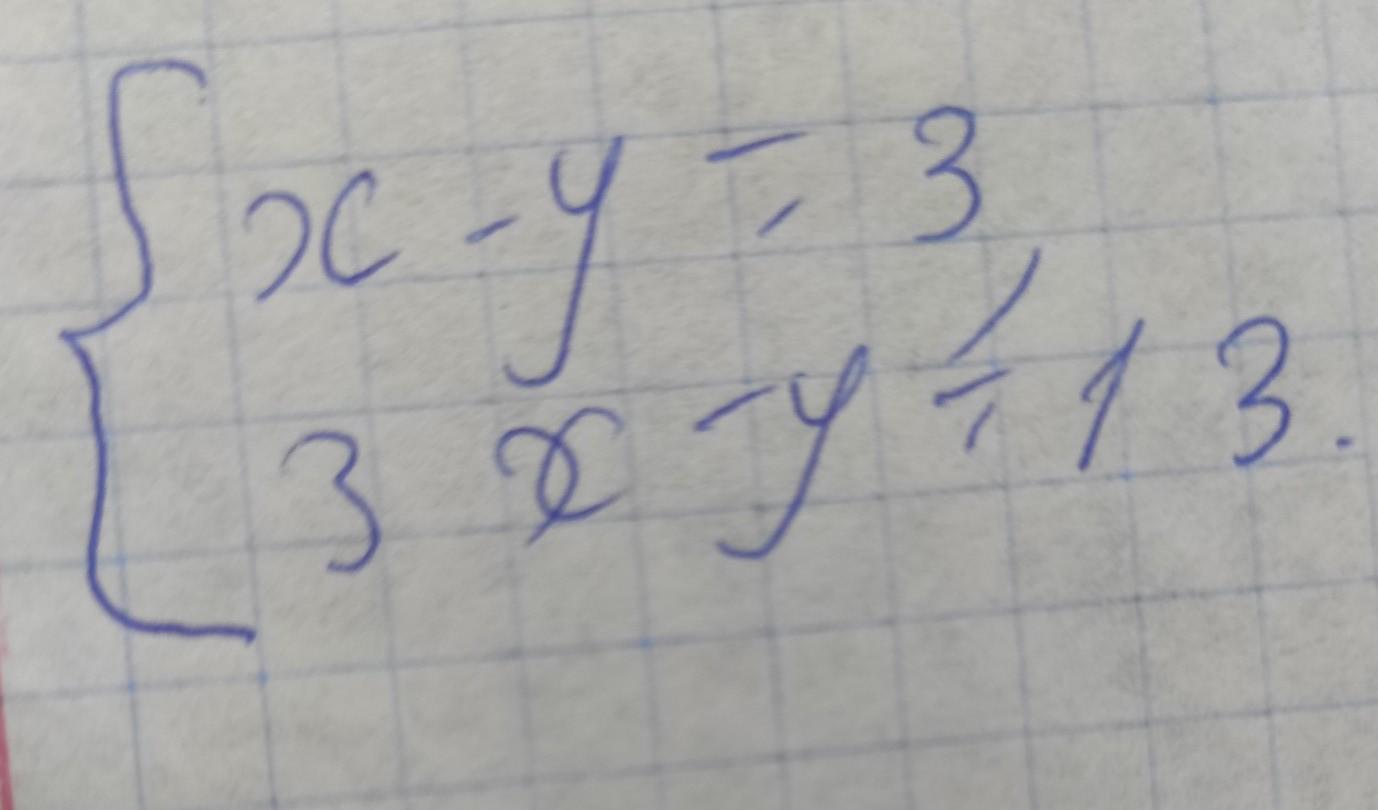 x - y = 3,
3x - y = 13.